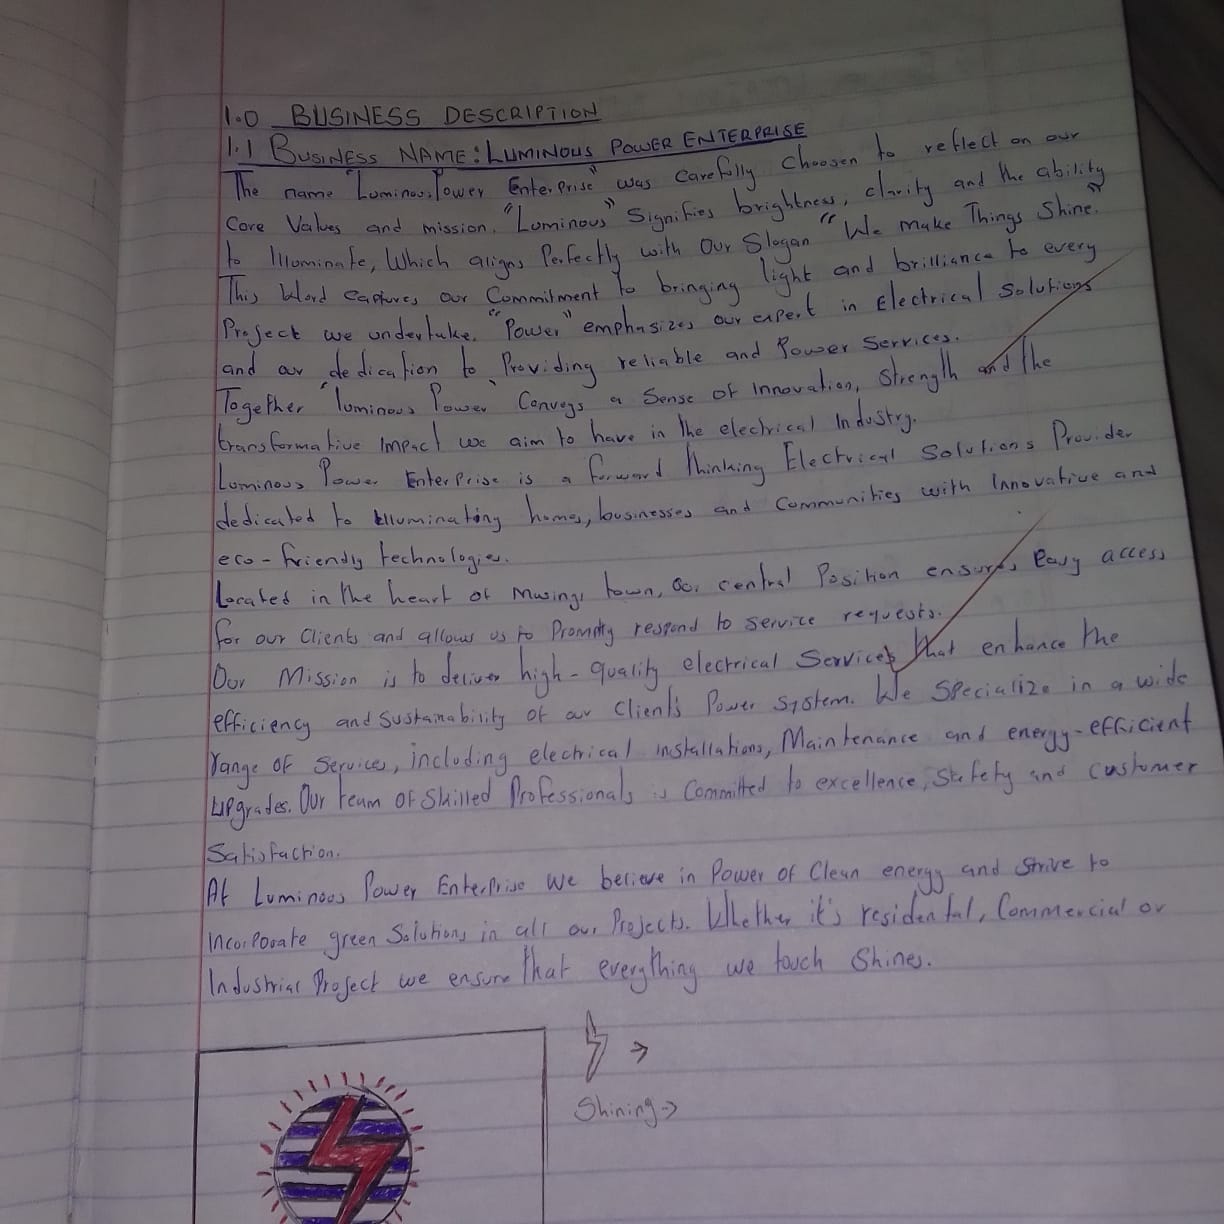 1.0 BUSINESS DESCRIPTION
1.1 BUSINESS NAME: LUMINOUS POWER ENTERPRISE
The name "Luminous Power Enterprise" was carefully choosen to reflect on our
Core Values and mission. "Luminous" Signifies brightness, clarity and the ability
to Illuminate, Which aligns Perfectly with Our Slogan "We make Things Shine."
This Word Captures our Commitment to bringing light and brilliance to every
Project we undertake. "Power" emphasizes our expert in Electrical Solutions
and our dedication to Providing reliable and Power Services.
Together "luminous Power" Conveys a Sense of Innovation, Strength and the
transformative Impact we aim to have in the electrical Industry.
Luminous Power Enterprise is a forward thinking Electrical Solutions Provider
dedicated to Illuminating homes, businesses and Communities with Innovative and
eco-friendly technologies.
Located in the heart of town, Our central Position ensures Easy access
for our Clients and allows us to Promptly respond to service requests.
Our Mission is to deliver high-quality electrical Services that enhance the
efficiency and sustainability of our Client's Power System. We Specialize in a wide
range of Services, including electrical installations, Maintenance and energy-efficient
Upgrades. Our team of Skilled Professionals is Committed to excellence, Safety and customer
Satisfaction.
At Luminous Power Enterprise We believe in Power of Clean energy and Strive to
Incorporate green Solutions in all our Projects. Whether it's residental, Commercial or
Industrial Project we ensure that everything we touch Shines.
Shining →